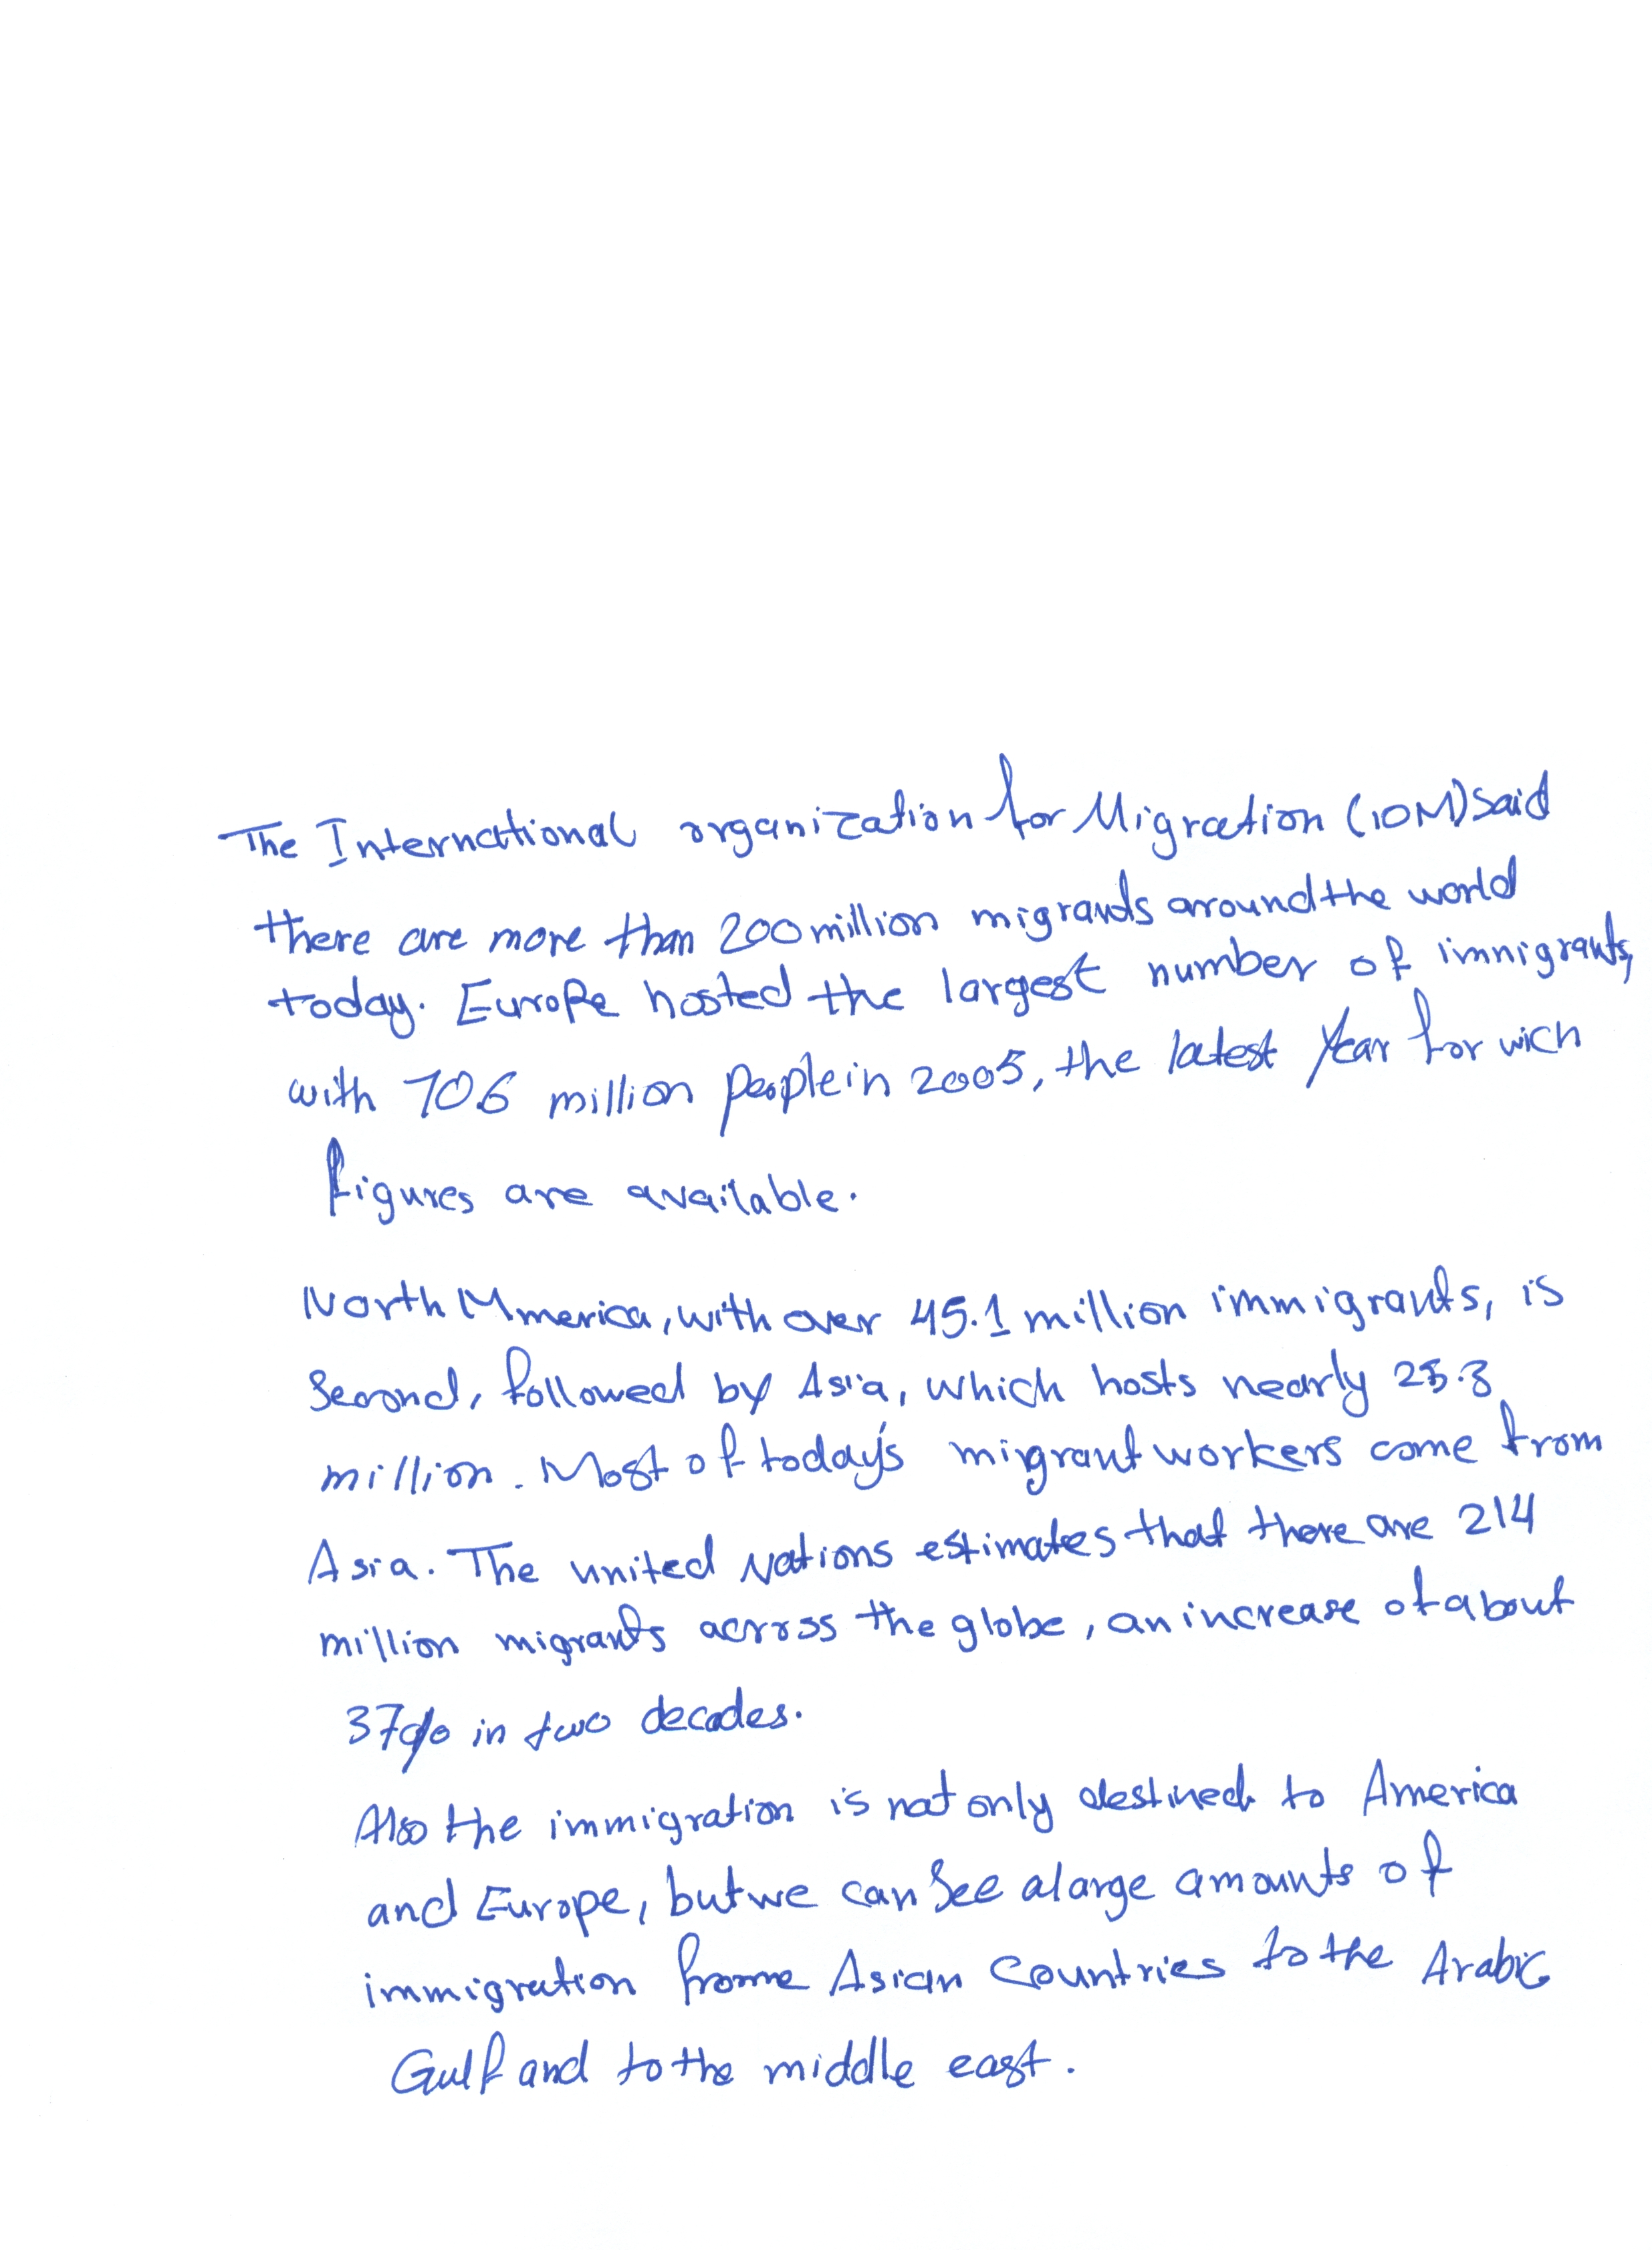 The International organization for Migration (IOM) said
there are more than 200 million migrants around the world
today. Europe hosted the largest number of immigrants,
with 70.6 million people in 2005, the latest year for wich
figures are available.
North Mmerica, with over 45.1 million immigrants, is
Second, followed by Asia, which hosts nearly 25.3
million. Most of today's migrant workers come from
Asia. The united Nations estimates that there are 214
million migrants across the globe, an increase of about
37% in two decades.
Also the immigration is not only destined to America
and Europe, but we can See a large amounts of
immigration frome Asian Countries to the Arabic
Gulf and to the middle east.